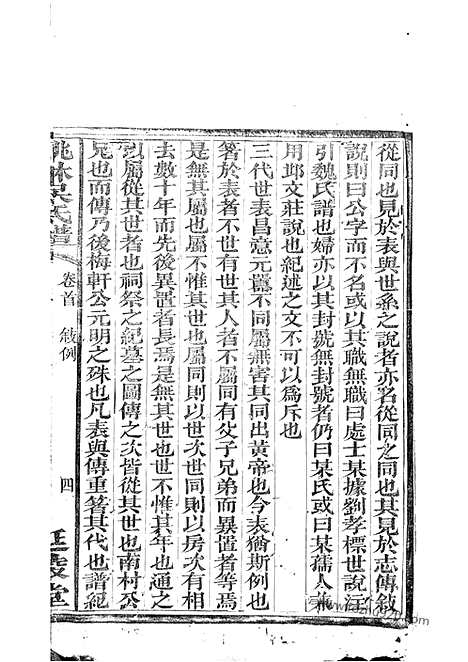 從同也見於表與世系之說者亦名從同之同也其見於志傳敘
說則曰公字而不名或以其職無職曰處士某據劉孝標世說注
引魏氏譜也婦亦以其封號無封號者仍曰某氏或曰某孺人兼
用邱文莊說也紀述之文不可以爲斥也
三代世表昌意元囂不同屬無害其同出黃帝也今表猶斯例也
箸於表者不世有世其人者不屬同有父子兄弟而異置者等焉
是無其屬也屬不惟其世也屬同則以世次世同則以房次有相
去數十年而先後異置者長焉是無其世也世不惟其年也通之
以屬從其世者也祠祭之紀墓之圖傳之次皆從其世也南村公
兄也而傳乃後梅軒公元明之殊也凡表與傳重箸其代也譜紀
洮林吳氏譜
卷首 敘例
四
延陵堂
www.eshufang.com